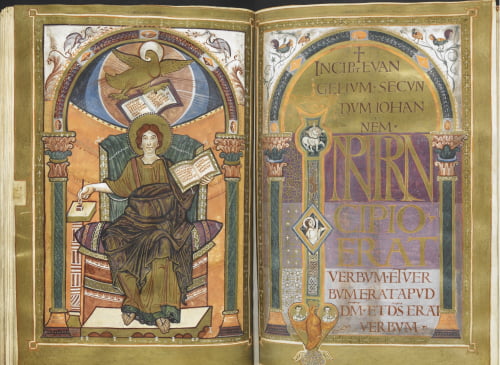 INCIPT EVAN
GELIUM · SECUN
DUM IOHAN
NEM ·
IN PRIN
CIPIO
ERAT
VERBUM · ET VER
BUM ERAT APVD
DM · ET DS ERAT
VERBUM ·